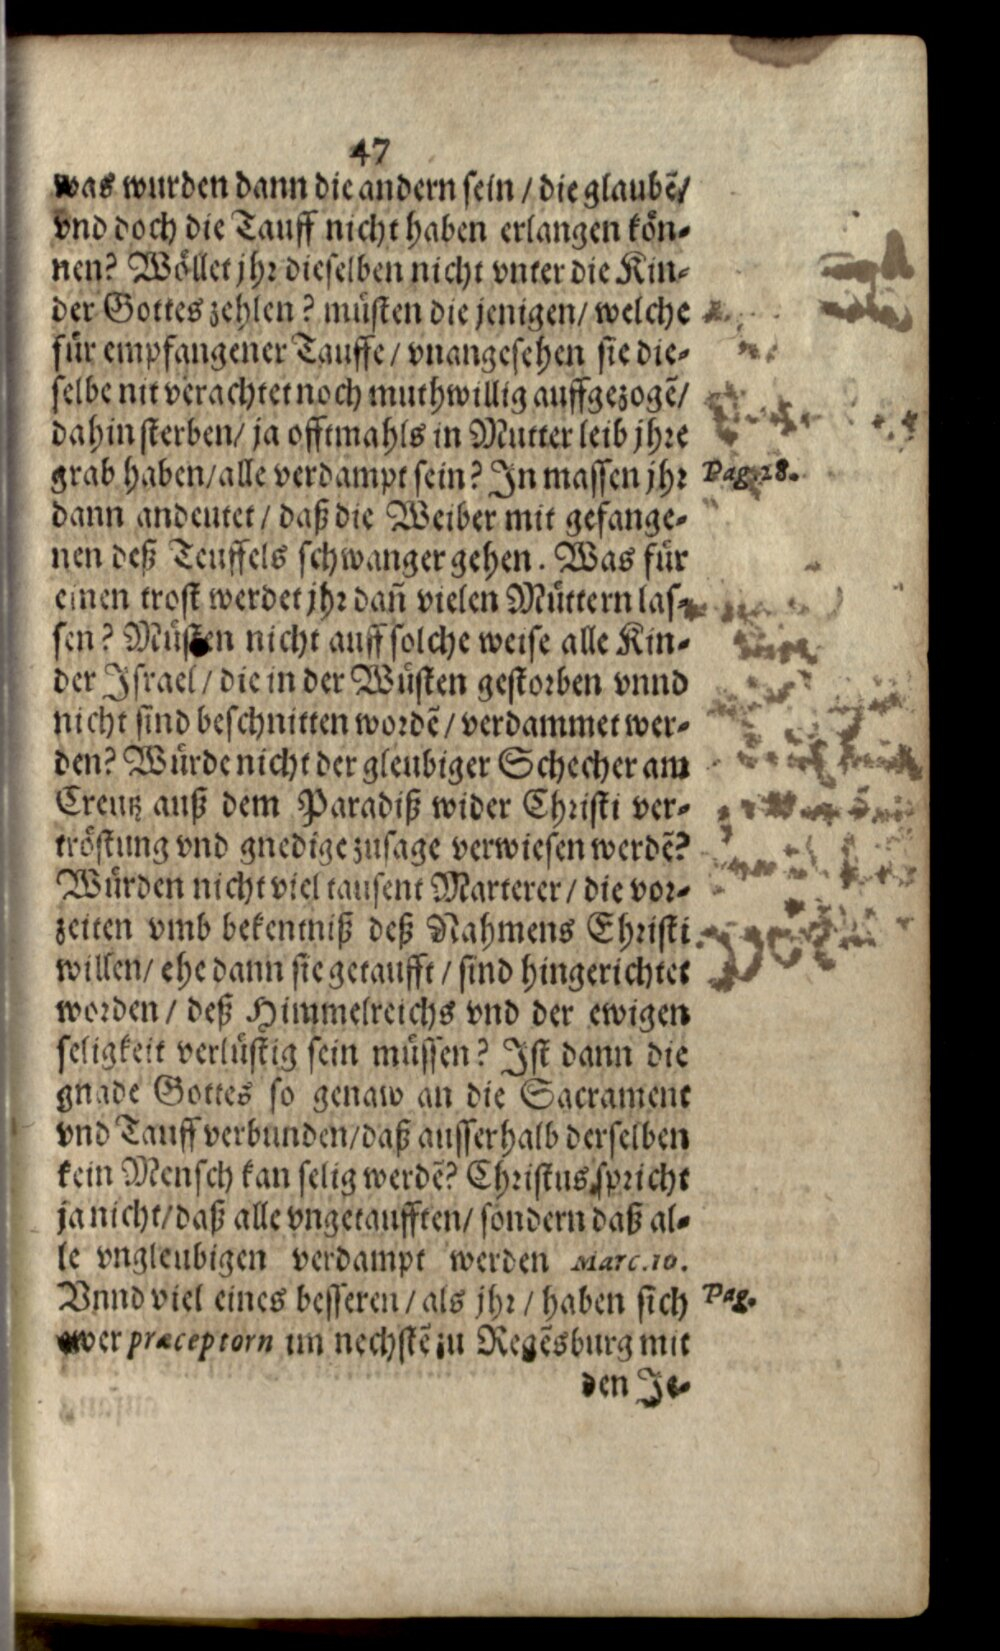 47
was wurden dann die andern sein / die glaubẽ/
vnd doch die Tauff nicht haben erlangen kön-
nen? Wöllet jhr dieselben nicht vnter die Kin-
der Gottes zehlen? müsten die jenigen/ welche
für empfangener Tauffe/ vnangesehen sie die-
selbe nit verachtet noch muthwillig auffgezogẽ/
dahin sterben/ ja offtmahls in Mutter leib jhre
grab haben/alle verdampt sein? In massen jhr Pag.28.
dann andeutet / daß die Weiber mit gefange-
nen deß Teuffels schwanger gehen. Was für
einen trost werdet jhr dañ vielen Müttern las-
sen? Müsten nicht auff solche weise alle Kin-
der Israel/ die in der Wüsten gestorben vnnd
nicht sind beschnitten wordẽ/ verdammet wer-
den? Würde nicht der gleubiger Schecher am
Creutz auß dem Paradiß wider Christi ver-
tröstung vnd gnedige zusage verwiesen werdẽ?
Würden nicht viel tausent Marterer / die vor-
zeiten vmb bekentniß deß Nahmens Christi
willen/ ehe dann sie getaufft / sind hingerichtet
worden / deß Himmelreichs vnd der ewigen
seligkeit verlüstig sein müssen? Ist dann die
gnade Gottes so genaw an die Sacrament
vnd Tauff verbunden/daß ausserhalb derselben
kein Mensch kan selig werdẽ? Christus spricht
ja nicht/daß alle vngetaufften/ sondern daß al-
le vngleubigen verdampt werden Marc.10.
Vnnd viel eines besseren / als jhr / haben sich Pag.
ewer præceptorn im nechstẽ zu Regẽsburg mit
den Je-